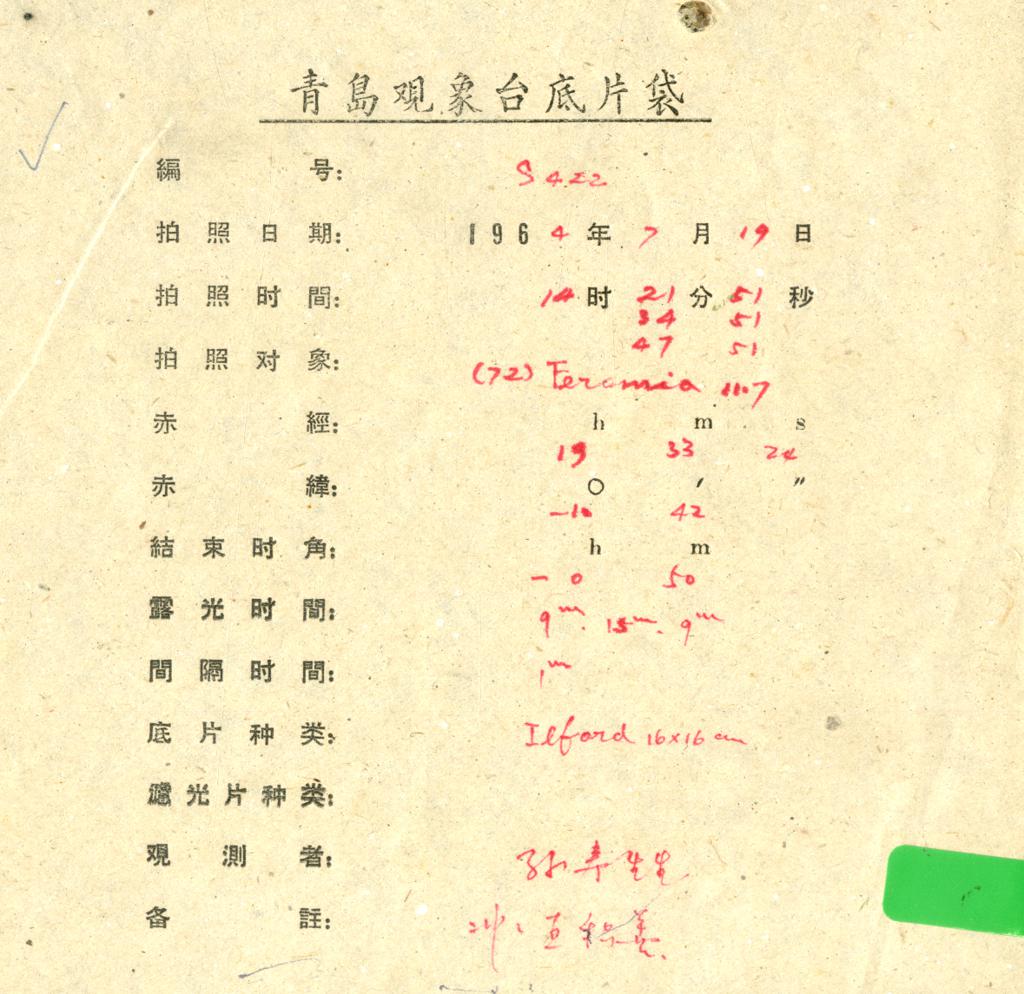 青島观象台底片袋
編号: S 422
拍照日期: 1964年7月19日
拍照时間: 14时21分51秒
34 51
47 51
拍照对象: (72) Feronia 11.7
赤經: h m s
19 33 24
赤緯: ○ ′ ″
-10 42
結束时角: h m
- 0 50
露光时間: 9m. 15m. 9m
間隔时間: 1m
底片种类: Ilford 16×16 cm
濾光片种类:
观測者: 孙寿
备註: